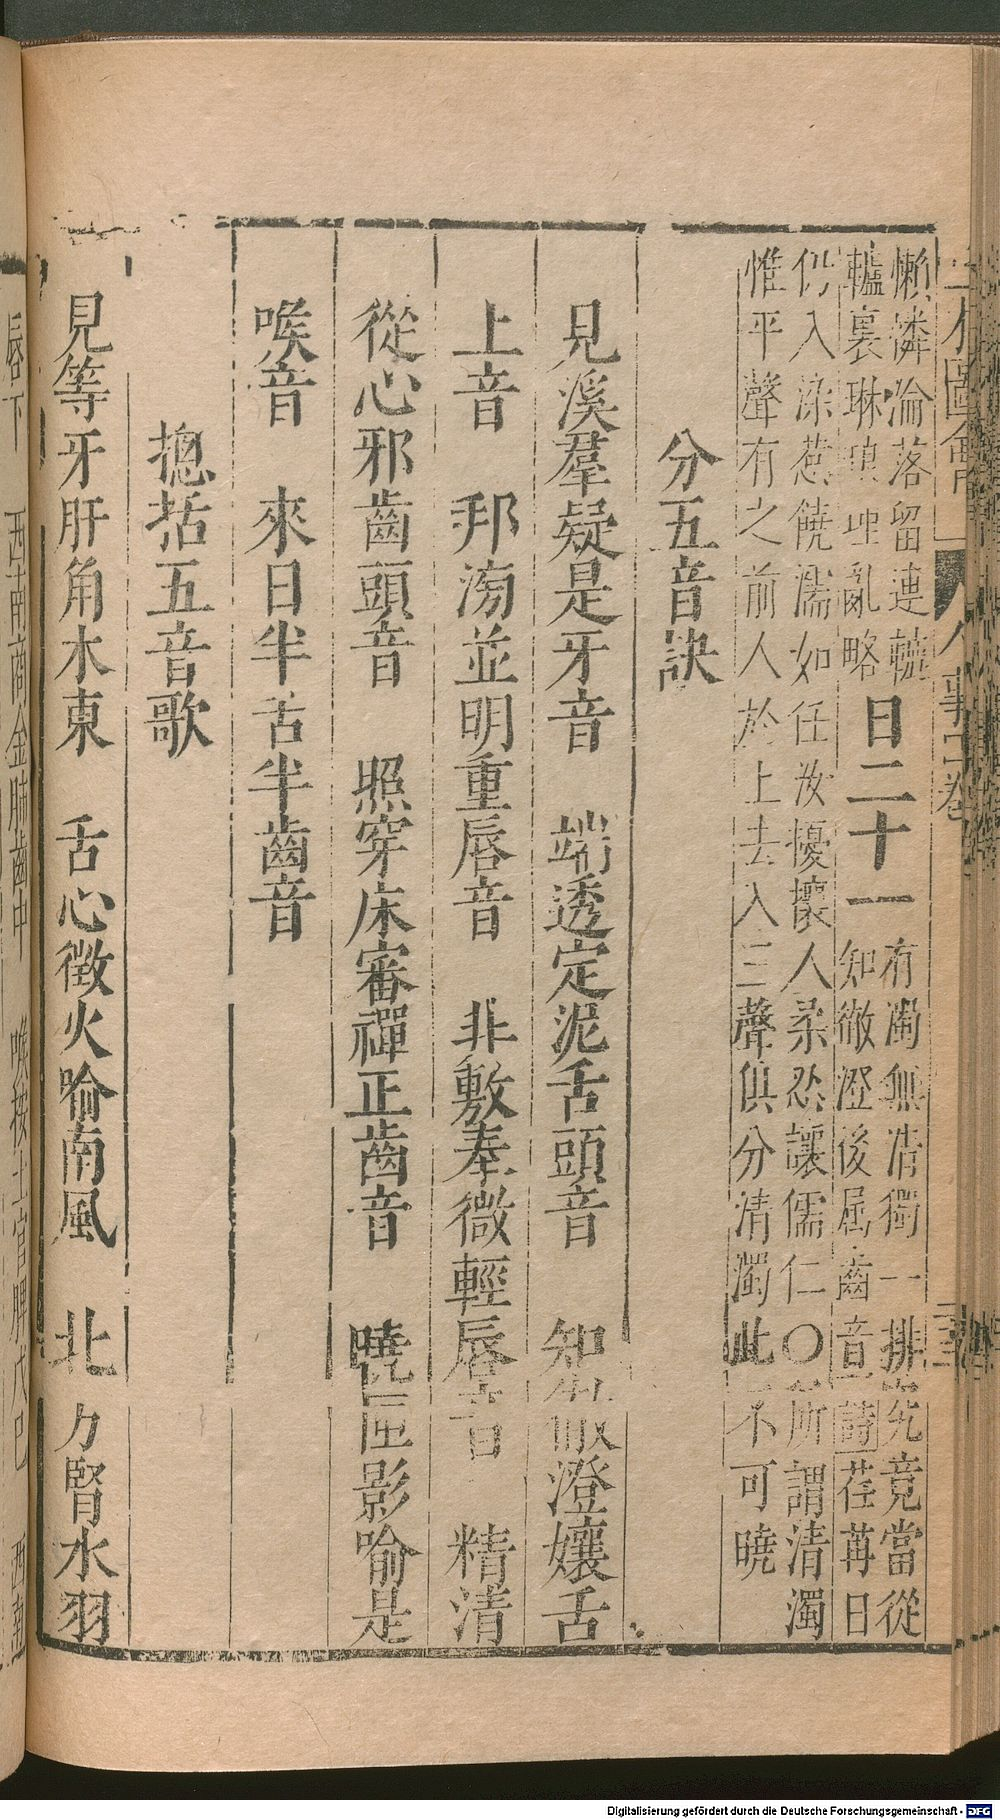 懶憐淪落留連轆
轤裏琳琅理亂略
日二十一
有濁無清獨一排究竟當從
知徹澄後屈齒音詩荏苒日
仍入染惹饒濡如任汝擾攘人柔忍讓儒仁〇所謂清濁
惟平聲有之前人於上去入三聲俱分清濁此不可曉
分五音訣
見溪羣疑是牙音 端透定泥舌頭音 知徹澄孃舌
上音 邦滂並明重唇音 非敷奉微輕唇音 精清
從心邪齒頭音 照穿床審禪正齒音 曉匣影喻是
喉音 來日半舌半齒音
摠括五音歌
見等牙肝角木東 舌心徵火喻南風 北方腎水羽
Digitalisierung gefördert durch die Deutsche Forschungsgemeinschaft - DFG